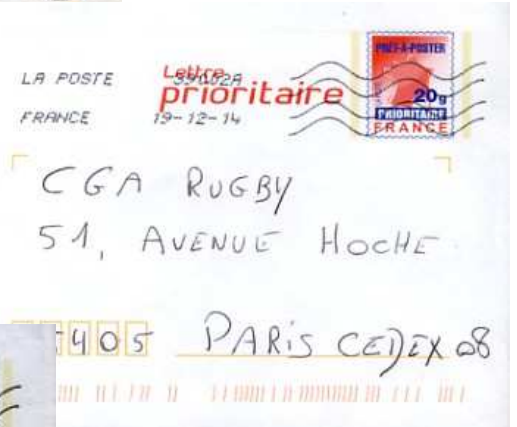 LA POSTE 39002A
Lettre prioritaire
FRANCE 19-12-14
PRÊT-À-POSTER
20g
PRIORITAIRE
FRANCE
CGA RUGBY
51, AVENUE HOCHE
5405 PARIS CEDEX 08